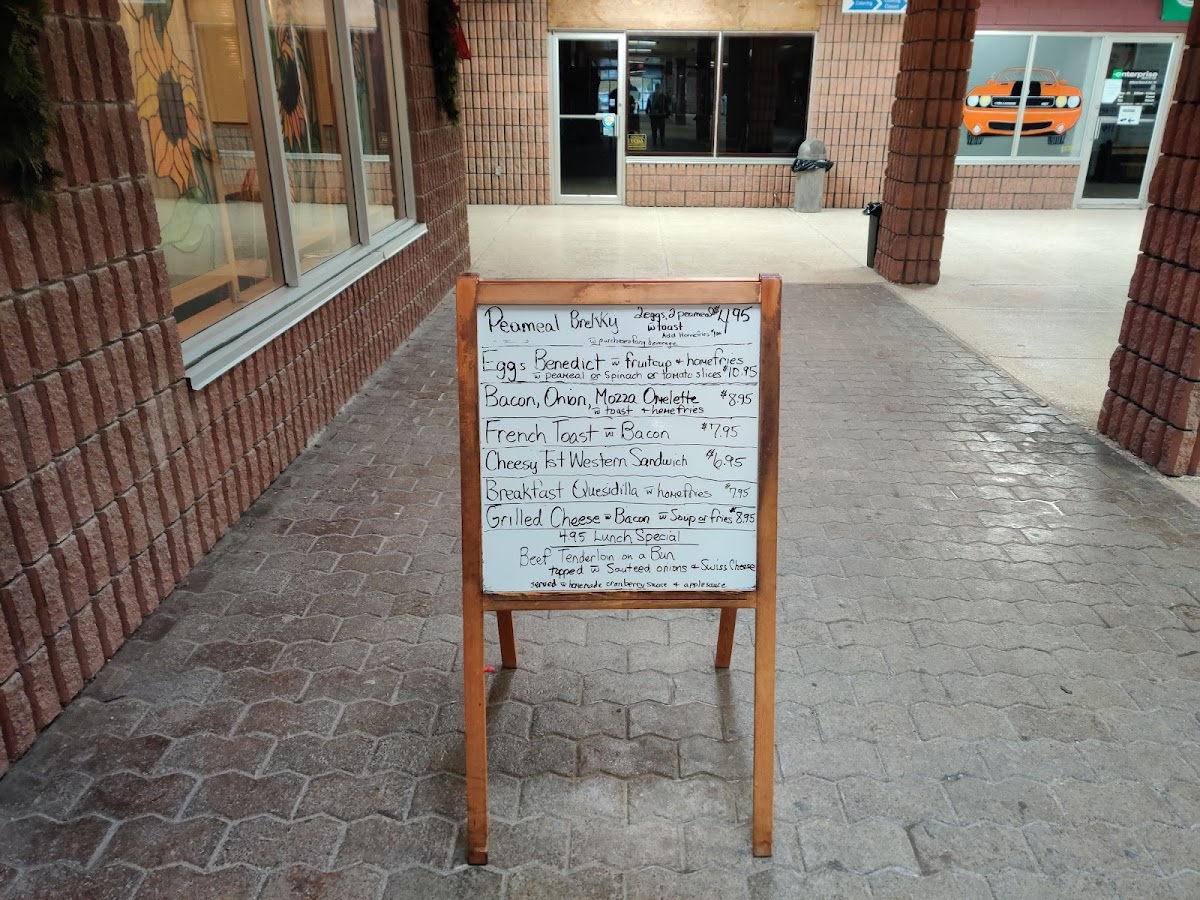 Peameal Brekky 2eggs, 2 peameal $4.95
w toast
Add Homefries
w purchase of any beverage
Eggs Benedict w fruitcup + homefries
w peameal or Spinach or tomato slices $10.95
Bacon, Onion, Mozza Omelette $8.95
w toast + homefries
French Toast w Bacon $7.95
Cheesy Tst Western Sandwich $6.95
Breakfast Quesidilla w homefries $7.95
Grilled Cheese w Bacon w Soup or fries $8.95
4.95 Lunch Special
Beef Tenderloin on a Bun
topped w Sauteed onions + Swiss Cheese
served w homemade cranberry sauce + applesauce
enterprise